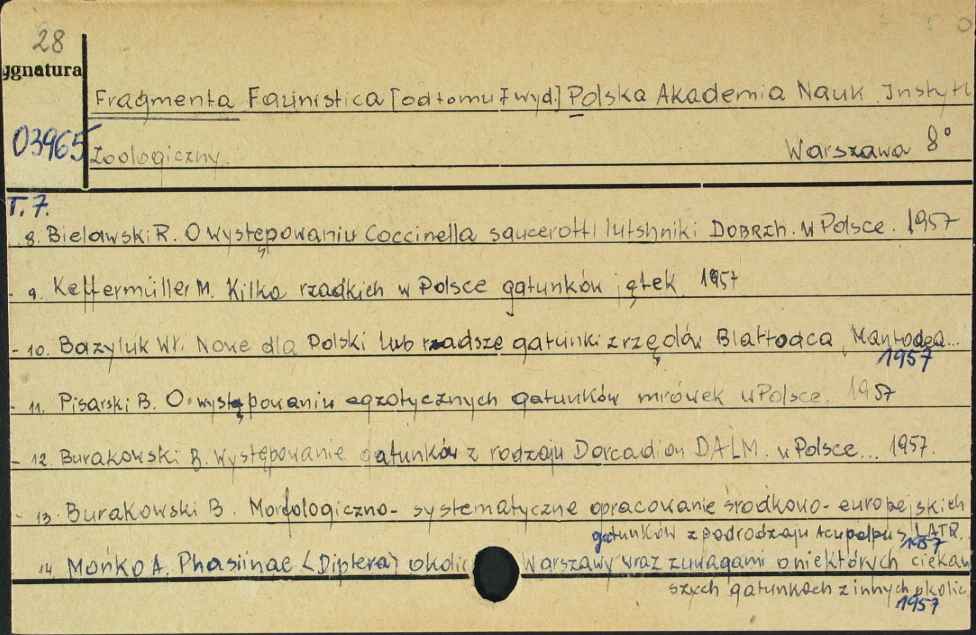 28
ygnatura
Fragmenta Faunistica [od tomu 7 wyd.] Polska Akademia Nauk. Instyt
03965 Zoologiczny. Warszawa 8°
T. 7.
8. Bielawski R. O występowaniu Coccinella saucerotti lutshniki DOBRZH. w Polsce. 1957
- 9. Keffermüller M. Kilka rzadkich w Polsce gatunków jętek. 1957
- 10. Bazyluk Wł. Nowe dla Polski lub rzadsze gatunki z rzędów Blattodea, Mantodea...
1957
- 11. Pisarski B. O występowaniu egzotycznych gatunków mrówek w Polsce. 1957
- 12. Burakowski B. Występowanie gatunków z rodzaju Dorcadion DALM. w Polsce... 1957.
- 13. Burakowski B. Morfologiczno-systematyczne opracowanie środkowo-europejskich
gatunków z podrodzaju Acupalpus LATR.
1957
14. Mońko A. Phasiinae (Diptera) okolic Warszawy wraz z uwagami o niektórych ciekaw
szych gatunkach z innych okolic
1957